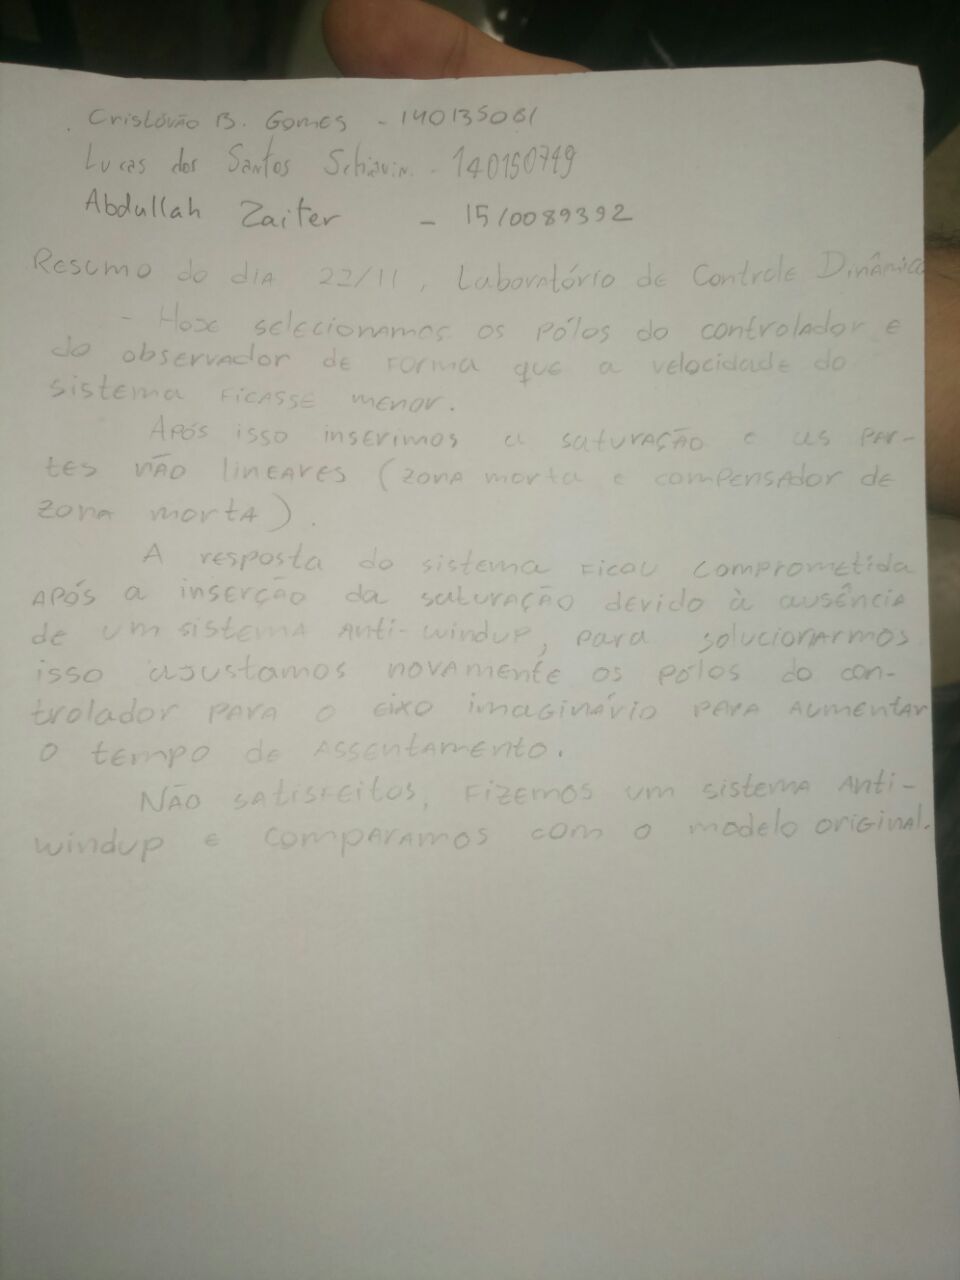 Cristóvão B. Gomes - 140135081
Lucas dos Santos - 140150749
Abdullah Zaiter - 15/0089392
Resumo do dia 22/11, Laboratório de Controle Dinâmico
- Hoje selecionamos os pólos do controlador e
do observador de forma que a velocidade do
sistema ficasse menor.
Após isso inserimos a saturação e as par-
tes não lineares (zona morta e compensador de
zona morta).
A resposta do sistema ficou comprometida
após a inserção da saturação devido à ausência
de um sistema anti-windup, para solucionarmos
isso ajustamos novamente os pólos do con-
trolador para o eixo imaginário para aumentar
o tempo de assentamento.
Não satisfeitos, fizemos um sistema anti-
windup e comparamos com o modelo original.